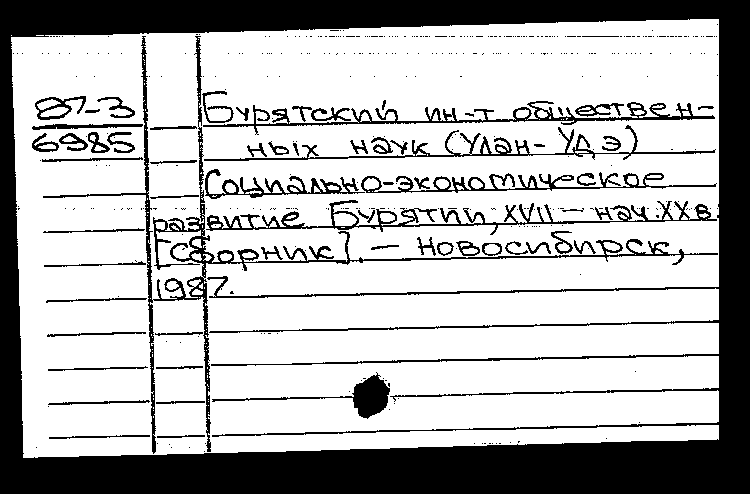 87-3
6985
Бурятский ин-т обществен-
ных наук (Улан-Удэ)
Социально-экономическое
развитие Бурятии, XVII - нач. XX в.
[Сборник]. - Новосибирск,
1987.